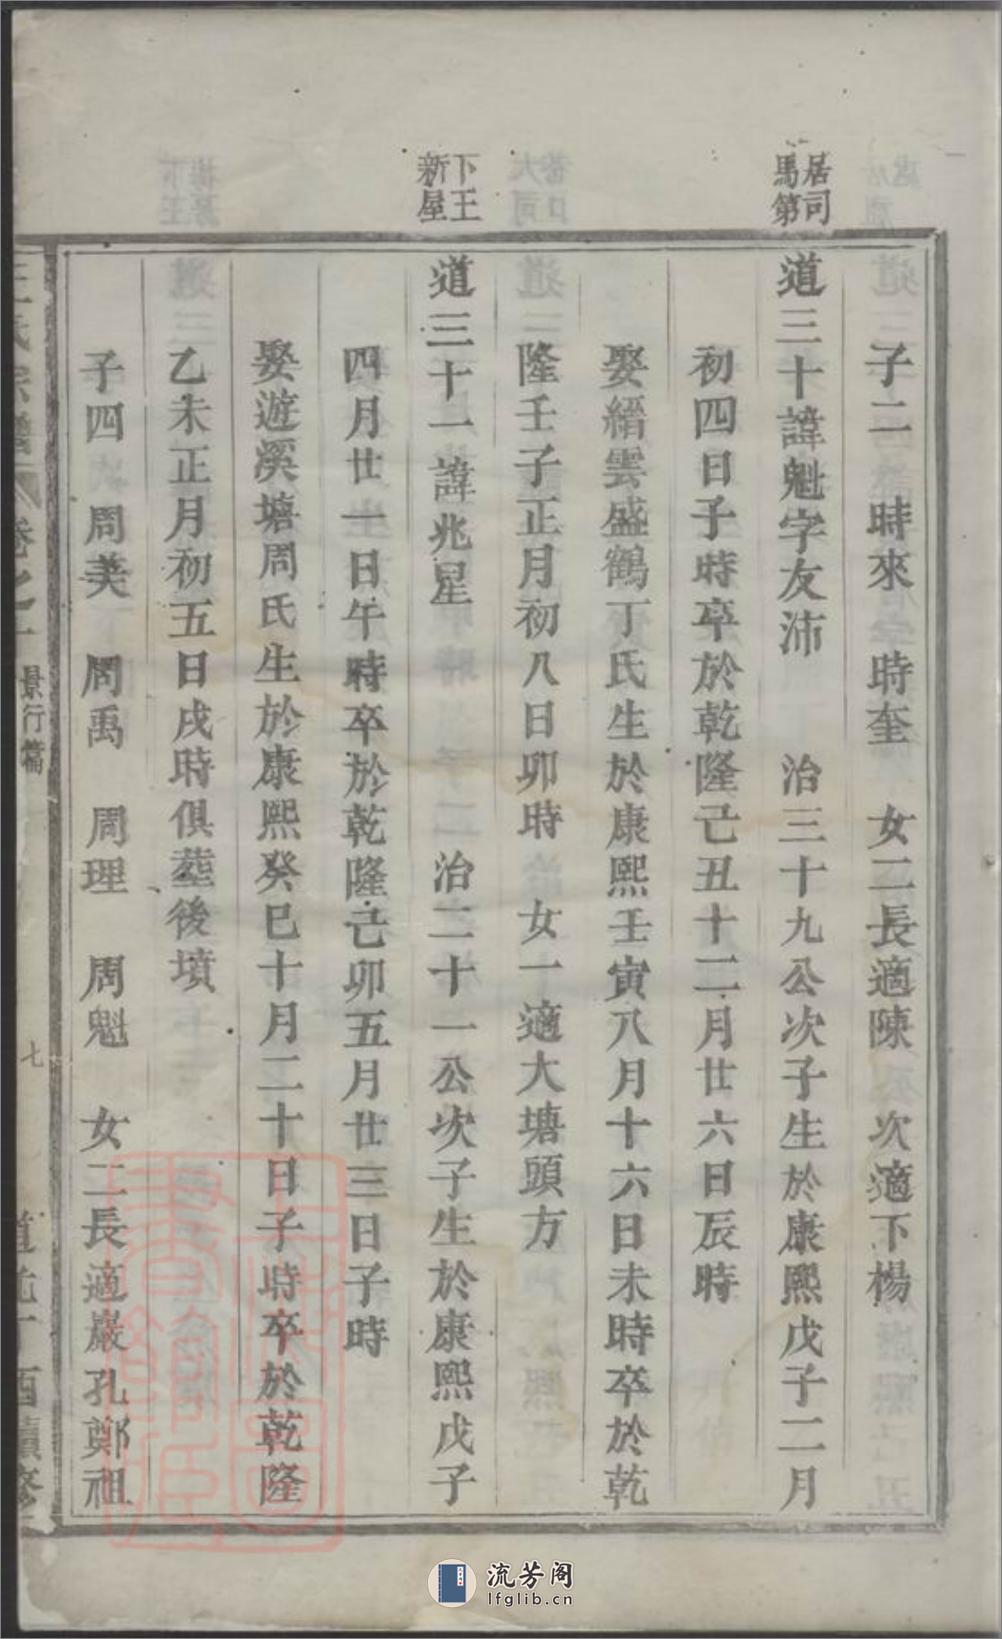 居司
馬第
子二　時來　時奎　女二長適陳　次適下楊
道三十諱魁字友沛　治三十九公次子生於康熙戊子二月
初四日子時卒於乾隆己丑十二月廿六日辰時
娶縉雲盛鶴丁氏生於康熙壬寅八月十六日未時卒於乾
隆壬子正月初八日卯時　女一適大塘頭方
下王
新屋
道三十一諱兆星　治二十一公次子生於康熙戊子
四月廿一日午時卒於乾隆己卯五月廿三日子時
娶遊溪塘周氏生於康熙癸巳十月二十日子時卒於乾隆
乙未正月初五日戌時俱葬後墳
子四　周美　周禹　周理　周魁　女二長適巖孔鄭祖
王氏宗譜　卷之　景行篇　七　道光丁酉續修
流芳阁
lfglib.cn